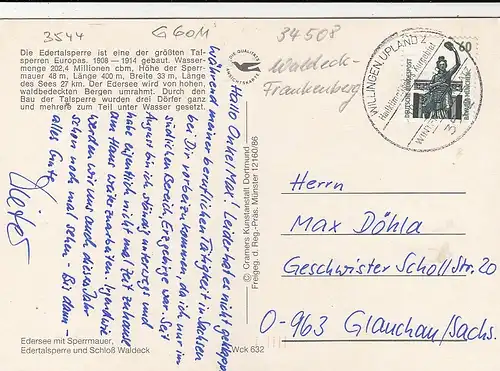 3544
G60M
34508
Waldeck-
Frankenberg
Die Edertalsperre ist eine der größten Tal-
sperren Europas. 1908 — 1914 gebaut. Wasser-
menge 202,4 Millionen cbm, Höhe der Sperr-
mauer 48 m, Länge 400 m, Breite 33 m, Länge
des Sees 27 km. Der Edersee wird von hohen,
waldbedeckten Bergen umrahmt. Durch den
Bau der Talsperre wurden drei Dörfer ganz
und mehrere zum Teil unter Wasser gesetzt.
Hallo Onkel Max! Leider hat es nicht geklappt
während meiner beruflichen Tätigkeit in Sachsen
bei Dir vorbeizukommen, da ich nur im
südlichen Bereich, Erzgebirge war. Seit
August bin ich ständig unterwegs und
habe eigentlich nicht viel Zeit zuhause
am Haus weiterzuarbeiten. Irgendwie
werden wir uns auch dieses Jahr
schon noch mal sehen - Bis dann -
alles Gute
Dieter
Edersee mit Sperrmauer,
Edertalsperre und Schloß Waldeck
Wck 632
© Cramers Kunstanstalt Dortmund
Freigeg. d. Reg.-Präs. Münster 12160/86
WILLINGEN, UPLAND
60
Herrn
Max Döhla
Geschwister Scholl Str. 20
O-963 Glauchau/Sachs.